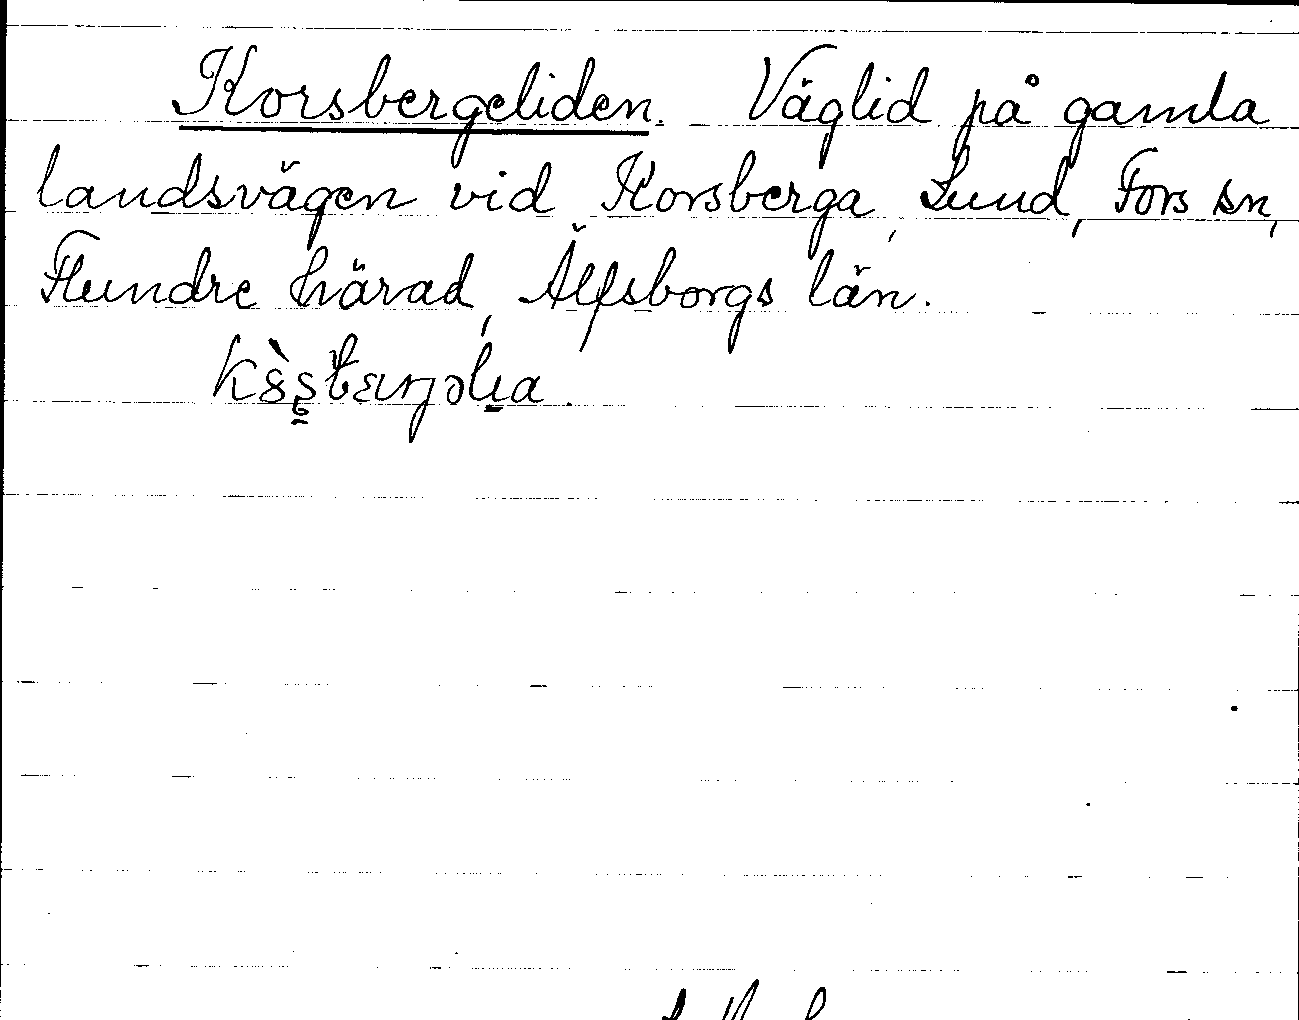 Korsbergeliden. Väglid på gamla
landsvägen vid Korsberga, Lund, Fors sn,
Flundre härad, Älfsborgs län.